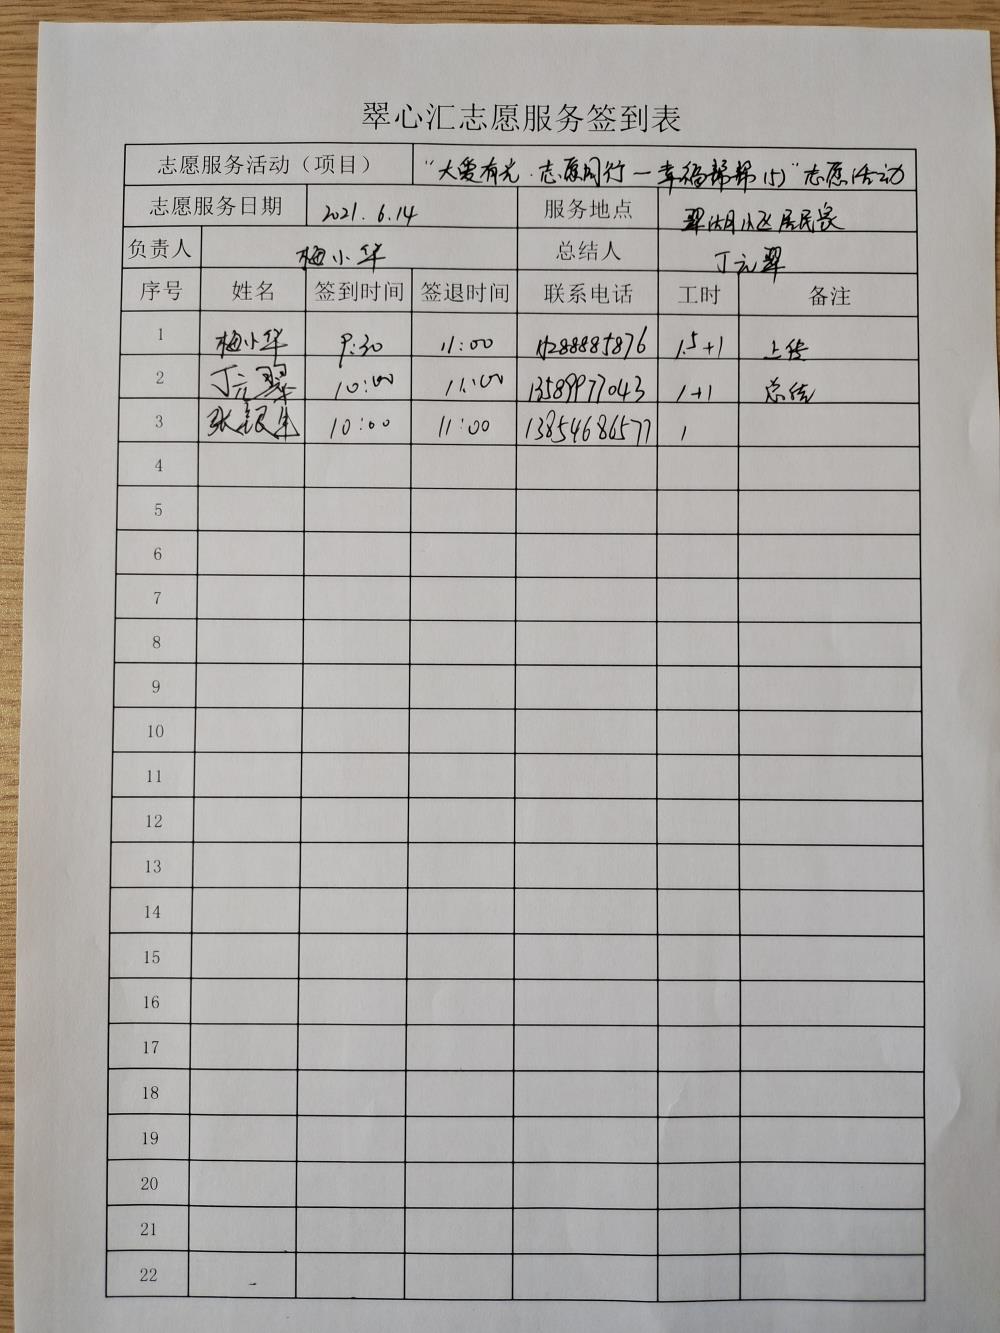 翠心汇志愿服务签到表
志愿服务活动（项目） “大爱有光·志愿同行—幸福帮帮15)”志愿活动
志愿服务日期 2021.6.14 服务地点 翠湖小区居民家
负责人 梅小华 总结人 丁元翠
序号 姓名 签到时间 签退时间 联系电话 工时 备注
1 梅小华 9:30 11:00 1.5+1 上传
2 丁元翠 10:00 11:00 13589977043 1+1 总结
3 10:00 11:00 13854686577 1
4
5
6
7
8
9
10
11
12
13
14
15
16
17
18
19
20
21
22